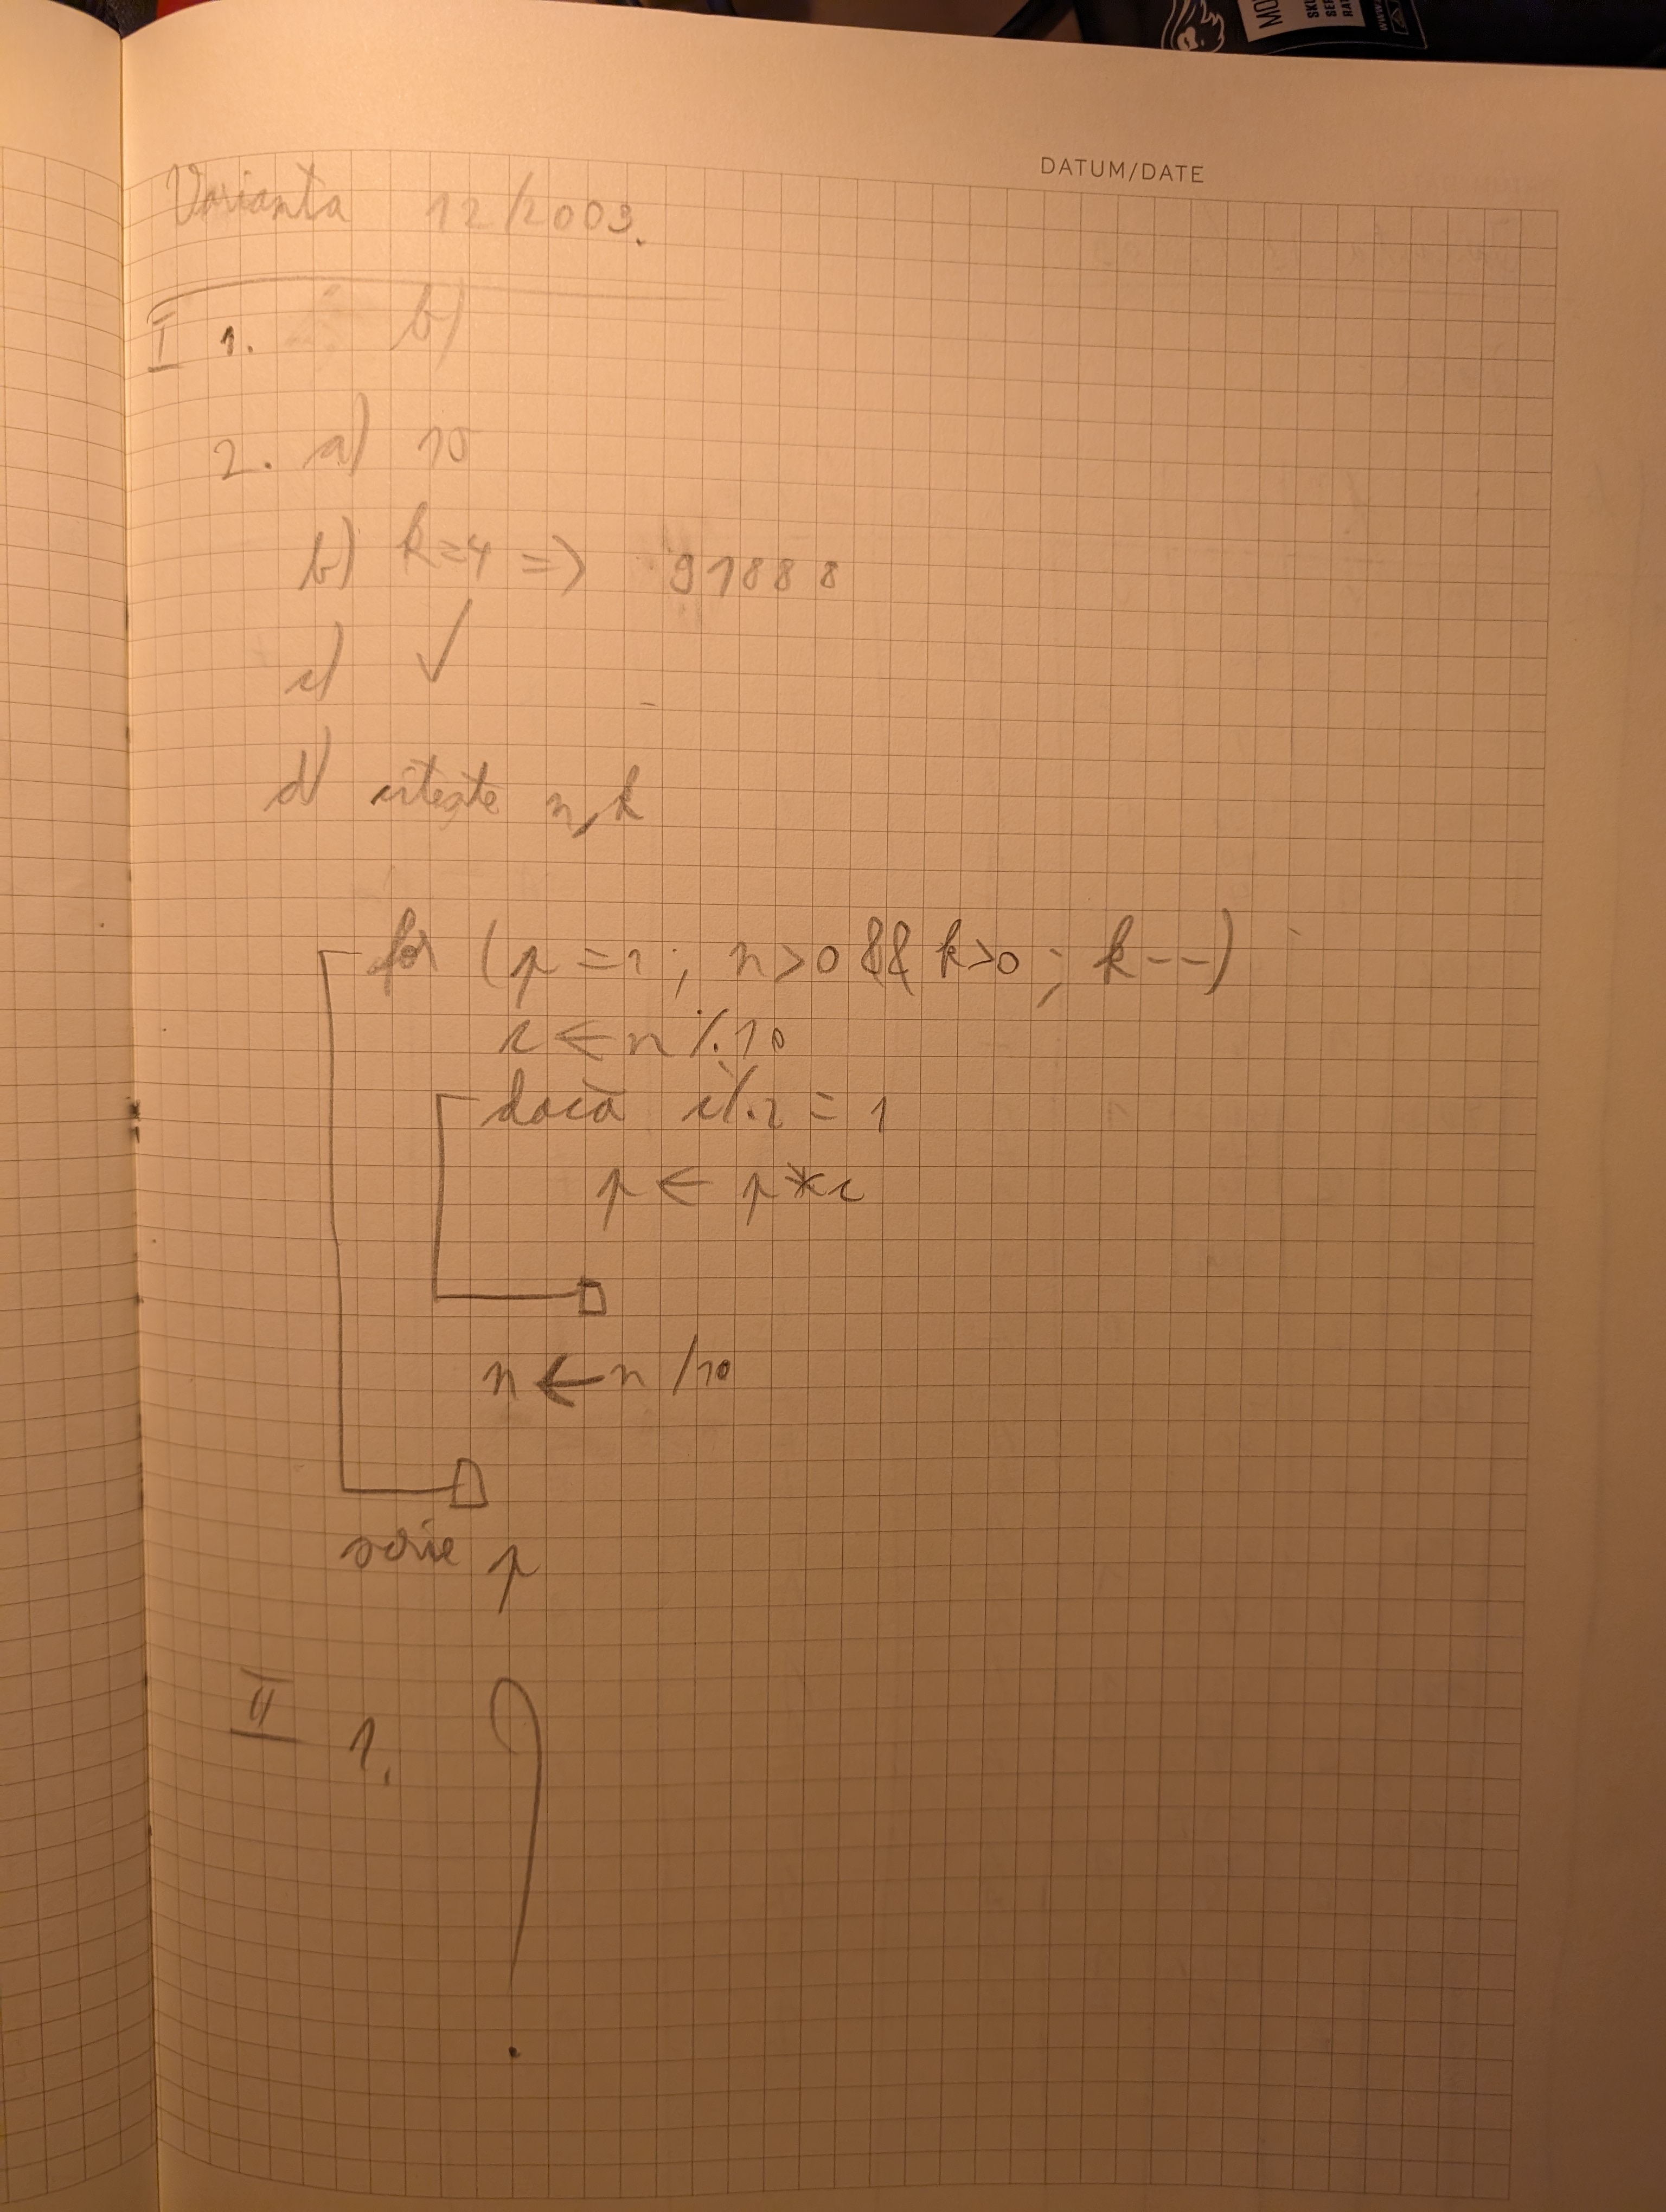 DATUM/DATE
Varianta 12/2009.
I 1. b)
2. a) 15
b) k=4 => 91888
c) ✓
d) citește n,k
for (p=1; n>0 && k>0; k--)
c ← n%10
dacă c%2 = 1
p ← p*c
n ← n/10
scrie p
II 1. ?